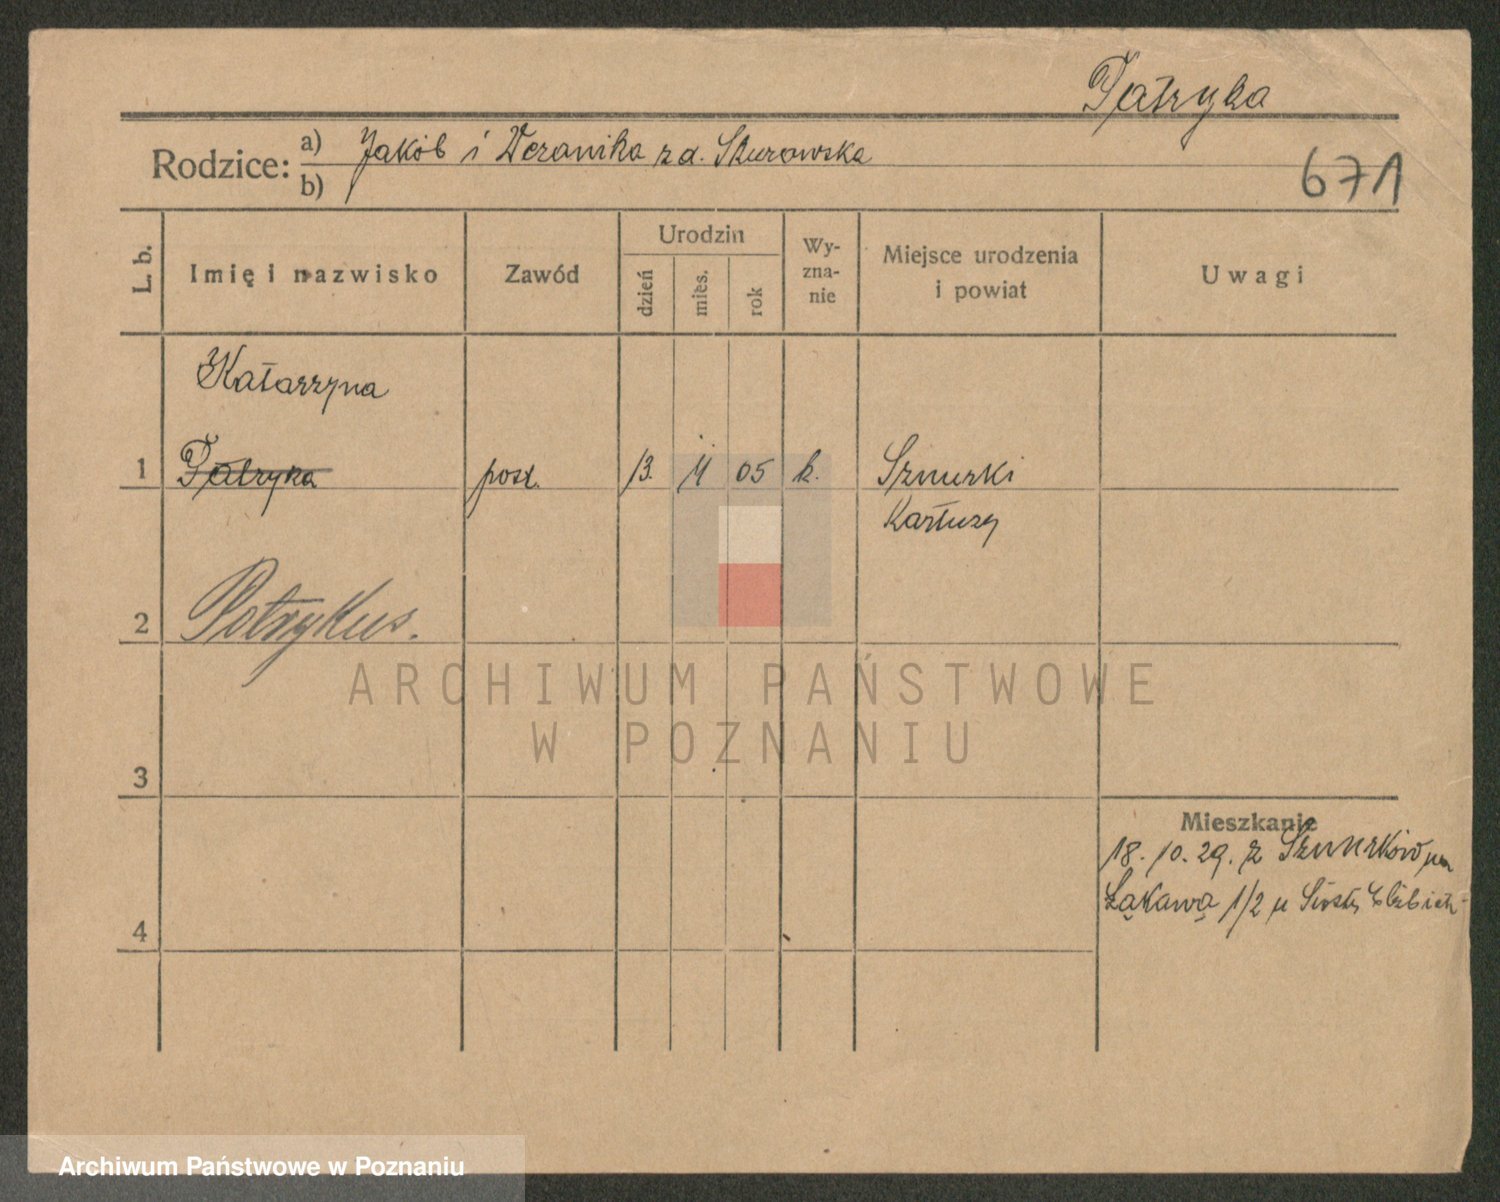 Patryka
Rodzice:
a) Jakób i Weronika z d. Skurowska
b)
671
L. b.
Imię i nazwisko
Zawód
Urodzin
dzień
mies.
rok
Wy-
zna-
nie
Miejsce urodzenia
i powiat
Uwagi
Katarzyna
1 Patryka posł. 13. 4 05 k. Sznurki
Kartuzy
2 Potrykus.
3
4
Mieszkanie
18. 10. 29. z Sznurków na
Łąkawą 1/2 u Siostr Elżbiet-
ARCHIWUM PAŃSTWOWE
W POZNANIU
Archiwum Państwowe w Poznaniu